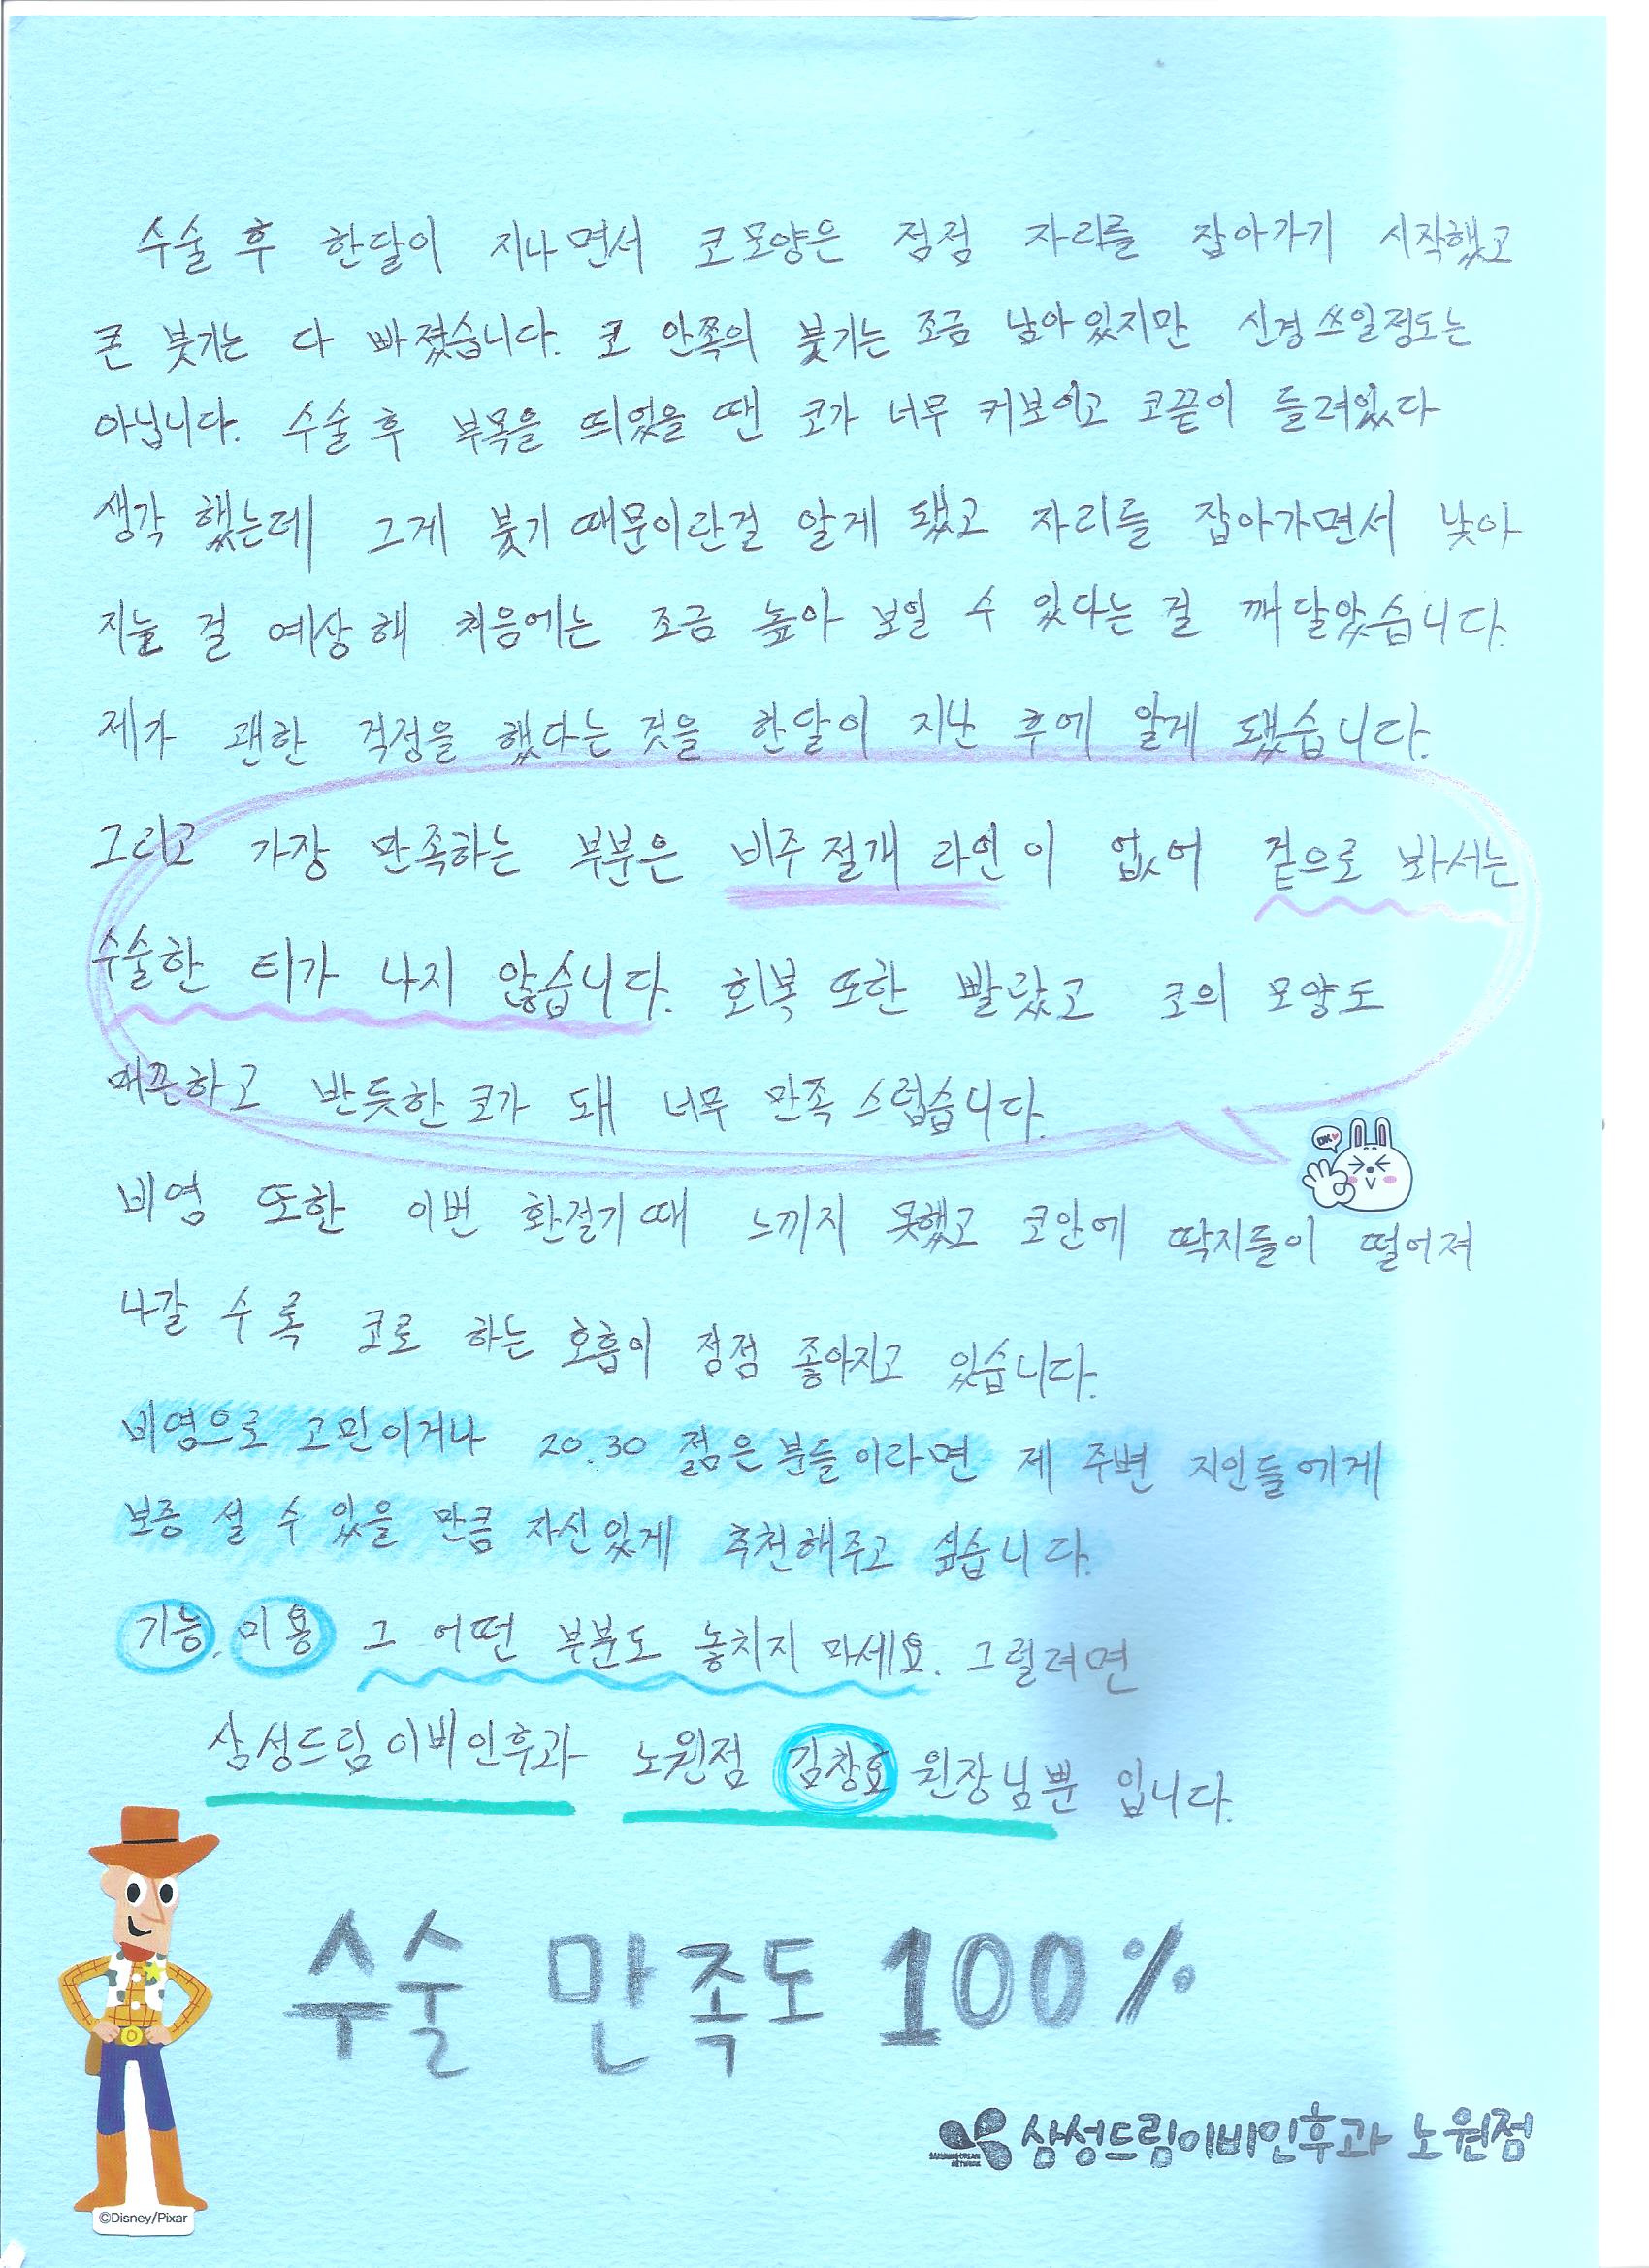 수술 후 한달이 지나면서 코모양은 점점 자리를 잡아가기 시작했고
큰 붓기는 다 빠졌습니다. 코 안쪽의 붓기는 조금 남아있지만 신경쓰일정도는
아닙니다. 수술 후 부목을 띄었을 땐 코가 너무 커보이고 코끝이 들려있다
생각 했는데 그게 붓기 때문이란걸 알게 됐고 자리를 잡아가면서 낮아
지늘 걸 예상해 처음에는 조금 높아 보일 수 있다는 걸 깨달았습니다.
제가 괜한 걱정을 했다는 것을 한달이 지난 후에 알게 됐습니다.
그리고 가장 만족하는 부분은 비주 절개 라인이 없어 겉으로 봐서는
수술한 티가 나지 않습니다. 회복 또한 빨랐고 코의 모양도
매끈하고 반듯한 코가 돼 너무 만족스럽습니다.
OK♥
비염 또한 이번 환절기때 느끼지 못했고 코안에 딱지들이 떨어져
나갈 수록 코로 하는 호흡이 점점 좋아지고 있습니다.
비염으로 고민이거나 20.30 젊은분들이라면 제 주변 지인들에게
보증 설 수 있을 만큼 자신있게 추천해주고 싶습니다.
기능, 미용 그 어떤 부분도 놓치지 마세요. 그럴려면
삼성드림이비인후과 노원점 김창효 원장님뿐 입니다.
수술 만족도 100%
삼성드림이비인후과 노원점
©Disney/Pixar